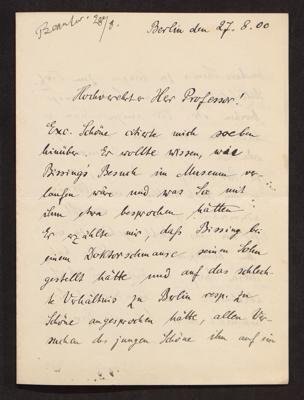 28/8.
Berlin den 27.8.00
Hochverehrter Herr Professor!
Exc. Schöne citirte mich soeben
hinüber. Er wollte wissen, wie
Bissing's Besuch im Museum ver-
laufen wäre und was Sie mit
ihm etwa besprochen hätten
Er erzählte mir, daß Bissing bei
einem Doktorschmause seinen Sohn
gestellt hätte und auf das schlech-
te Verhältnis zu Berlin resp. zu
Schöne angesprochen hätte, allen Ver-
suchen des jungen Schöne ihn auf ein